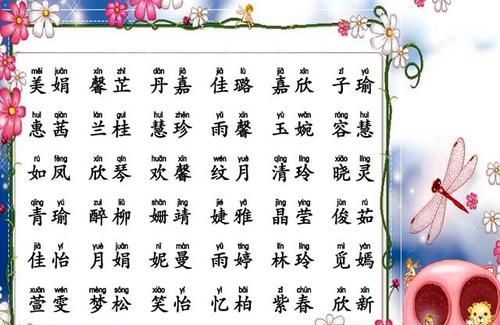 měi juān xīn zhǐ dān jiā jiā lù jiā xīn zǐ yú
美娟 馨芷 丹嘉 佳璐 嘉欣 子瑜
huì qiàn lán guì huì zhēn yǔ xīn yù wǎn róng huì
惠茜 兰桂 慧珍 雨馨 玉婉 容慧
rú fèng xīn qín huān xīn wén yuè qīng líng xiǎo líng
如凤 欣琴 欢馨 纹月 清玲 晓灵
qīng yú zuì liǔ shān jìng jié yǎ jīng yíng jùn rú
青瑜 醉柳 姗靖 婕雅 晶莹 俊茹
jiā yí yuè juān nī màn yǔ tíng lín líng mì yān
佳怡 月娟 妮曼 雨婷 林玲 觅嫣
xuān wén mèng sōng xiào yí yì bǎi zǐ chūn xīn xīn
萱雯 梦松 笑怡 忆柏 紫春 欣新